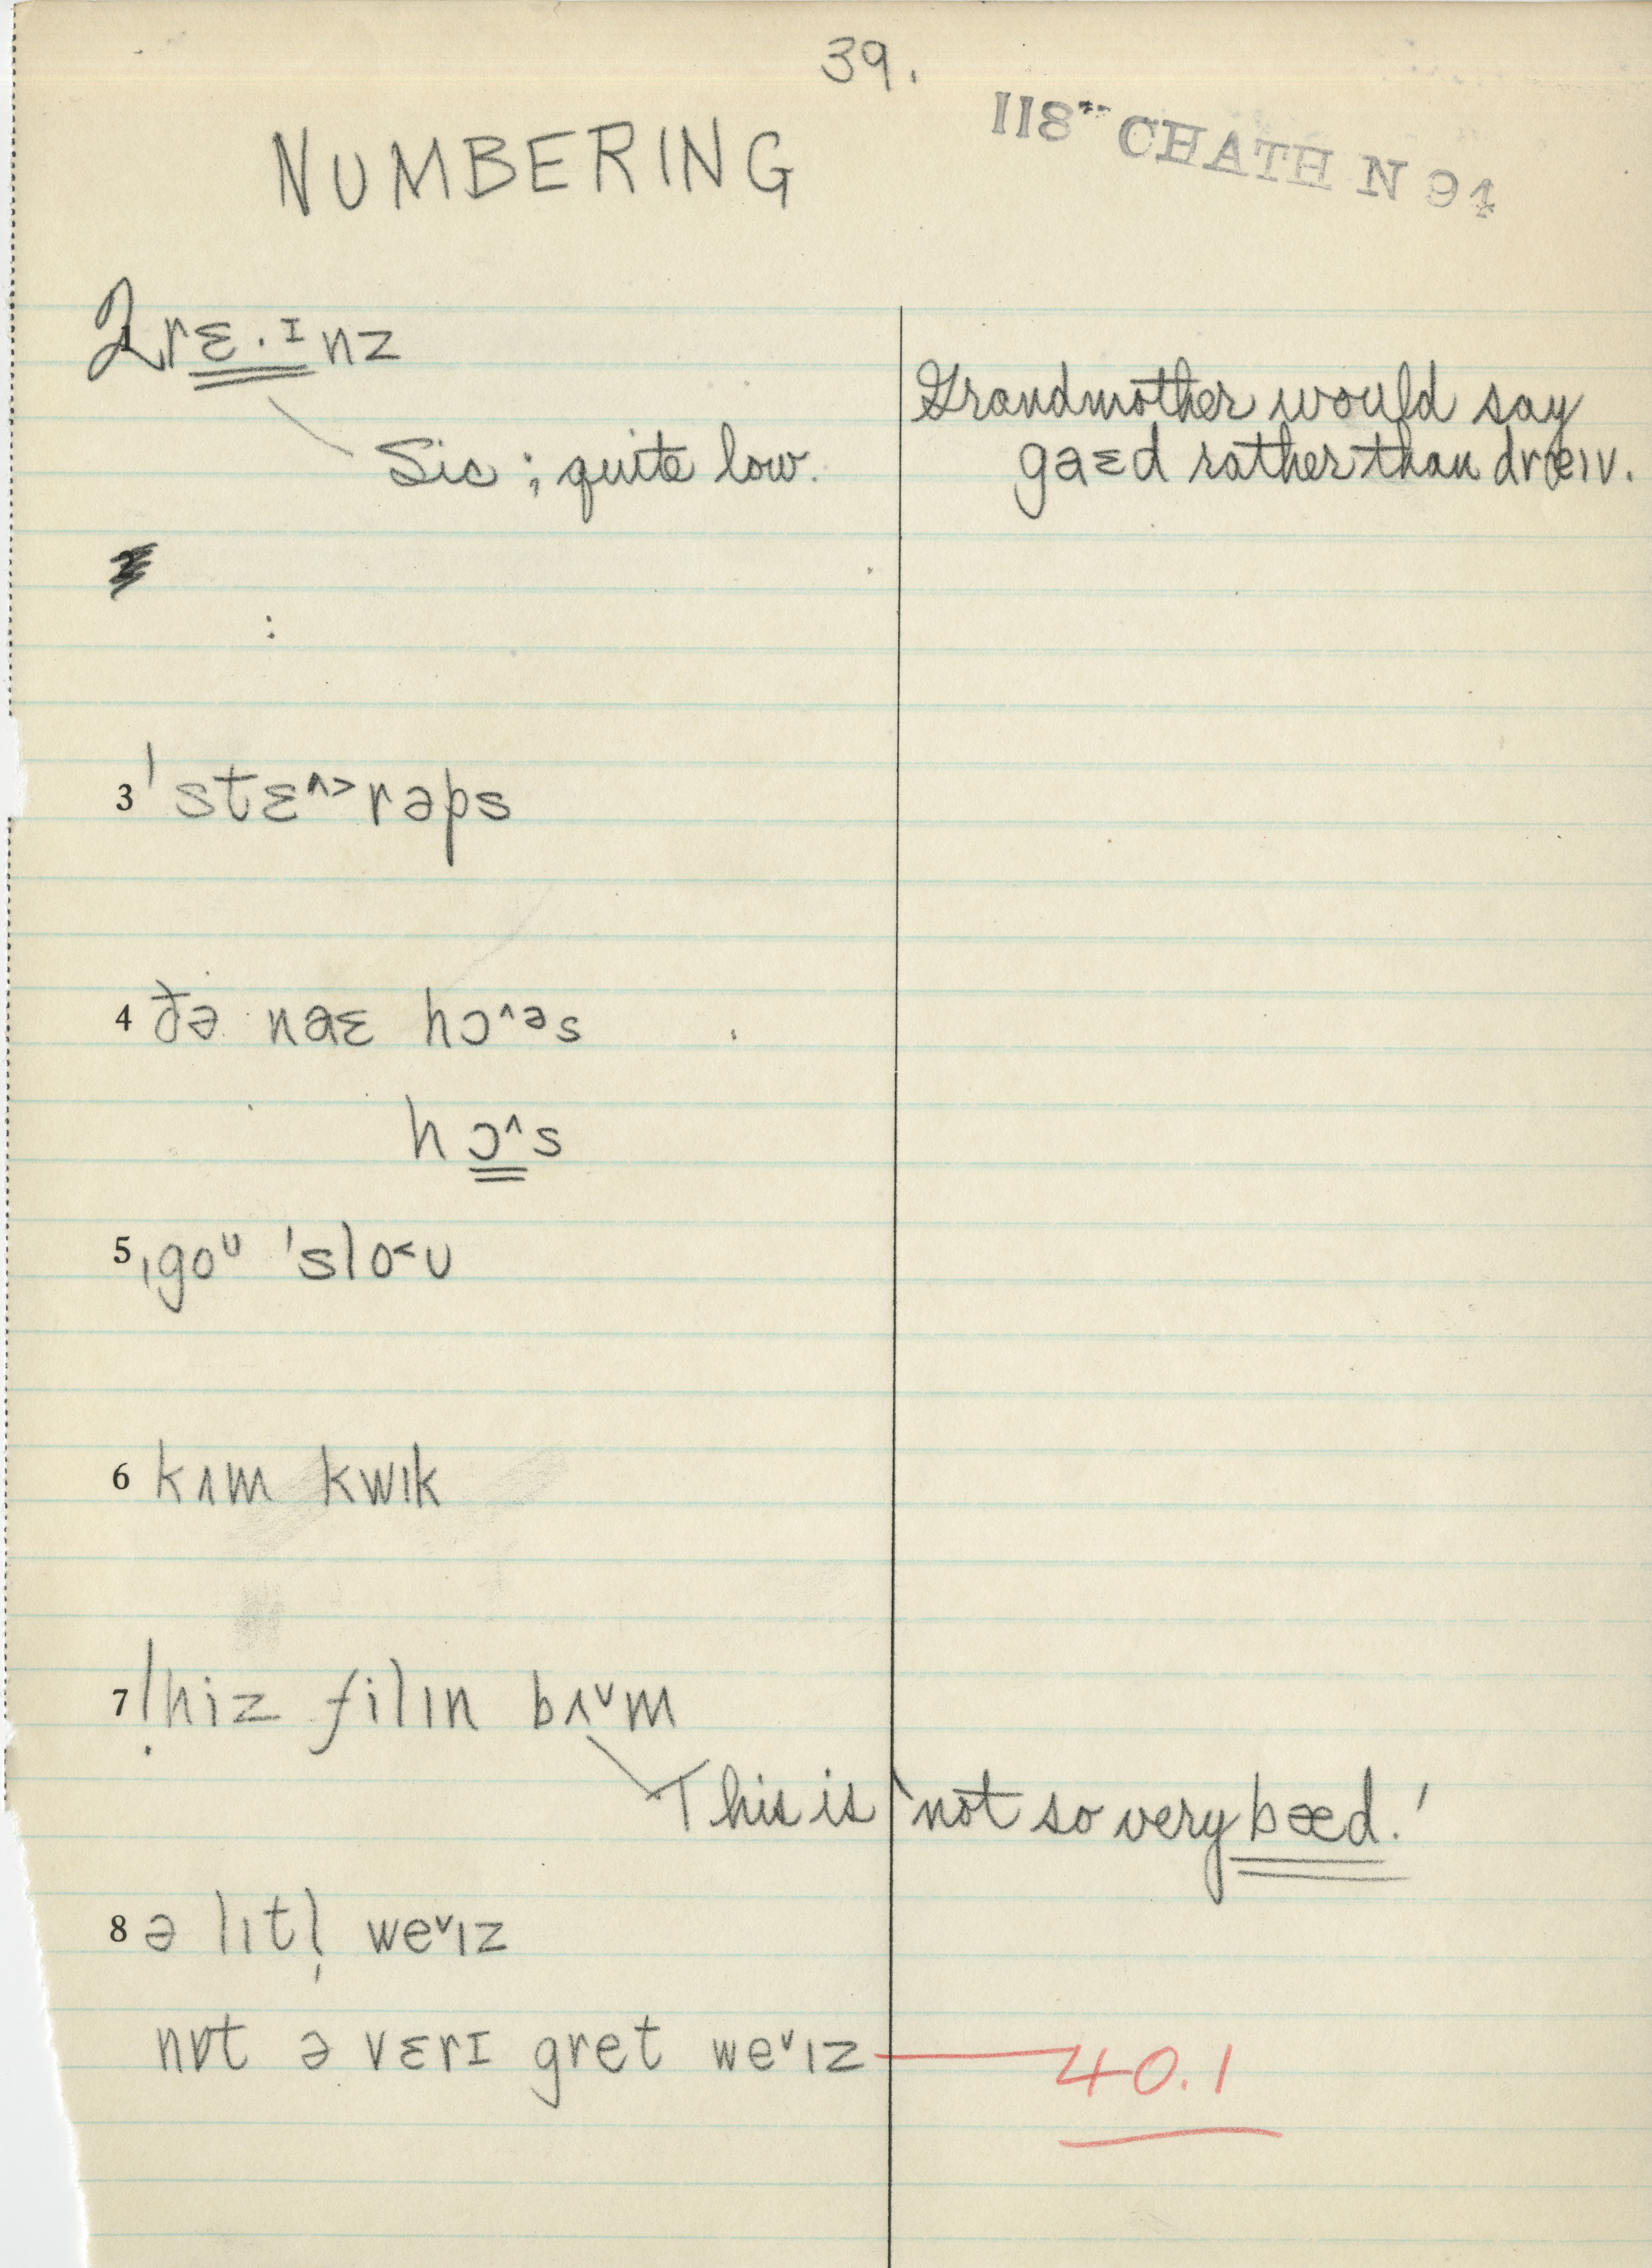 39.
NUMBERING
118** CHATH N 94
2 rɛ·ɪnz
Grandmother would say
Sic; quite low.
gaɛd rather than dræɪv.
:
3 ˈstɛ^>rəps
4 ðə naɛ hɔ^əs
hɔ^s
5 ˌgoᴜ ˈslo<ᴜ
6 kʌm kwɪk
7 !hiz filɪn bʌˇm
This is 'not so very bæd.'
8 ə lɪtl̩ weˇɪz
nɒt ə vɛrɪ gret weˇɪz 40.1